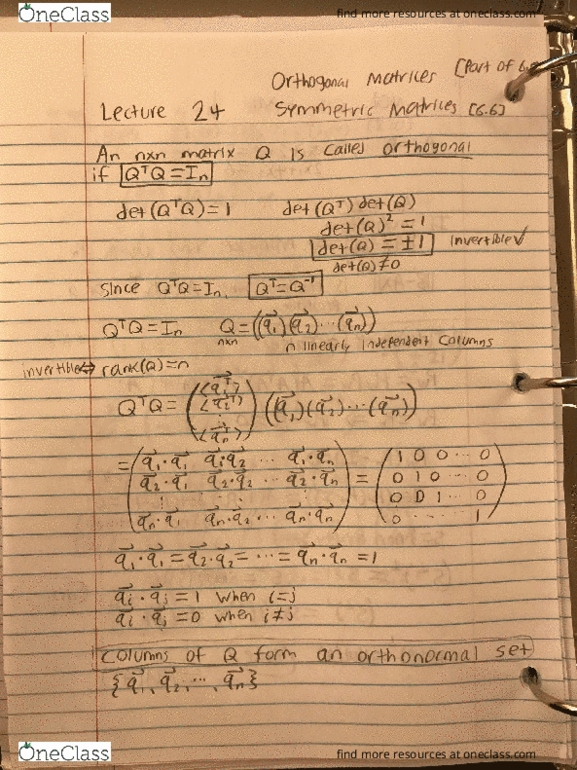 OneClass
find more resources at oneclass.com
Orthogonal Matrices [Part of 6.
Lecture 24 Symmetric Matrices [6.6]
An nxn matrix Q is called orthogonal
if QᵀQ = Iₙ
det(QᵀQ) = 1 det(Qᵀ) det(Q)
det(Q)² = 1
det(Q) = ±1 invertible ✓
det(Q) ≠ 0
since QᵀQ = Iₙ, Qᵀ = Q⁻¹
QᵀQ = Iₙ Q = ((q⃗₁)(q⃗₂)···(q⃗ₙ))
nxn n linearly independent columns
invertible ⇔ rank(Q) = n
QᵀQ = ((q⃗₁ᵀ) (q⃗₂ᵀ) ⋮ (q⃗ₙᵀ)) ((q⃗₁)(q⃗₂)···(q⃗ₙ))
= ( q⃗₁·q⃗₁ q⃗₁·q⃗₂ ··· q⃗₁·q⃗ₙ ) = ( 1 0 0 ··· 0 )
q⃗₂·q⃗₁ q⃗₂·q⃗₂ ··· q⃗₂·q⃗ₙ 0 1 0 ··· 0
⋮ ⋮ ⋮ 0 0 1 ··· 0
q⃗ₙ·q⃗₁ q⃗ₙ·q⃗₂ ··· q⃗ₙ·q⃗ₙ 0 ···· 1
q⃗₁·q⃗₁ = q⃗₂·q⃗₂ = ··· = q⃗ₙ·q⃗ₙ = 1
q⃗ᵢ·q⃗ⱼ = 1 when i=j
q⃗ᵢ·q⃗ⱼ = 0 when i≠j
columns of Q form an orthonormal set
{q⃗₁, q⃗₂, ···, q⃗ₙ}
OneClass
find more resources at oneclass.com